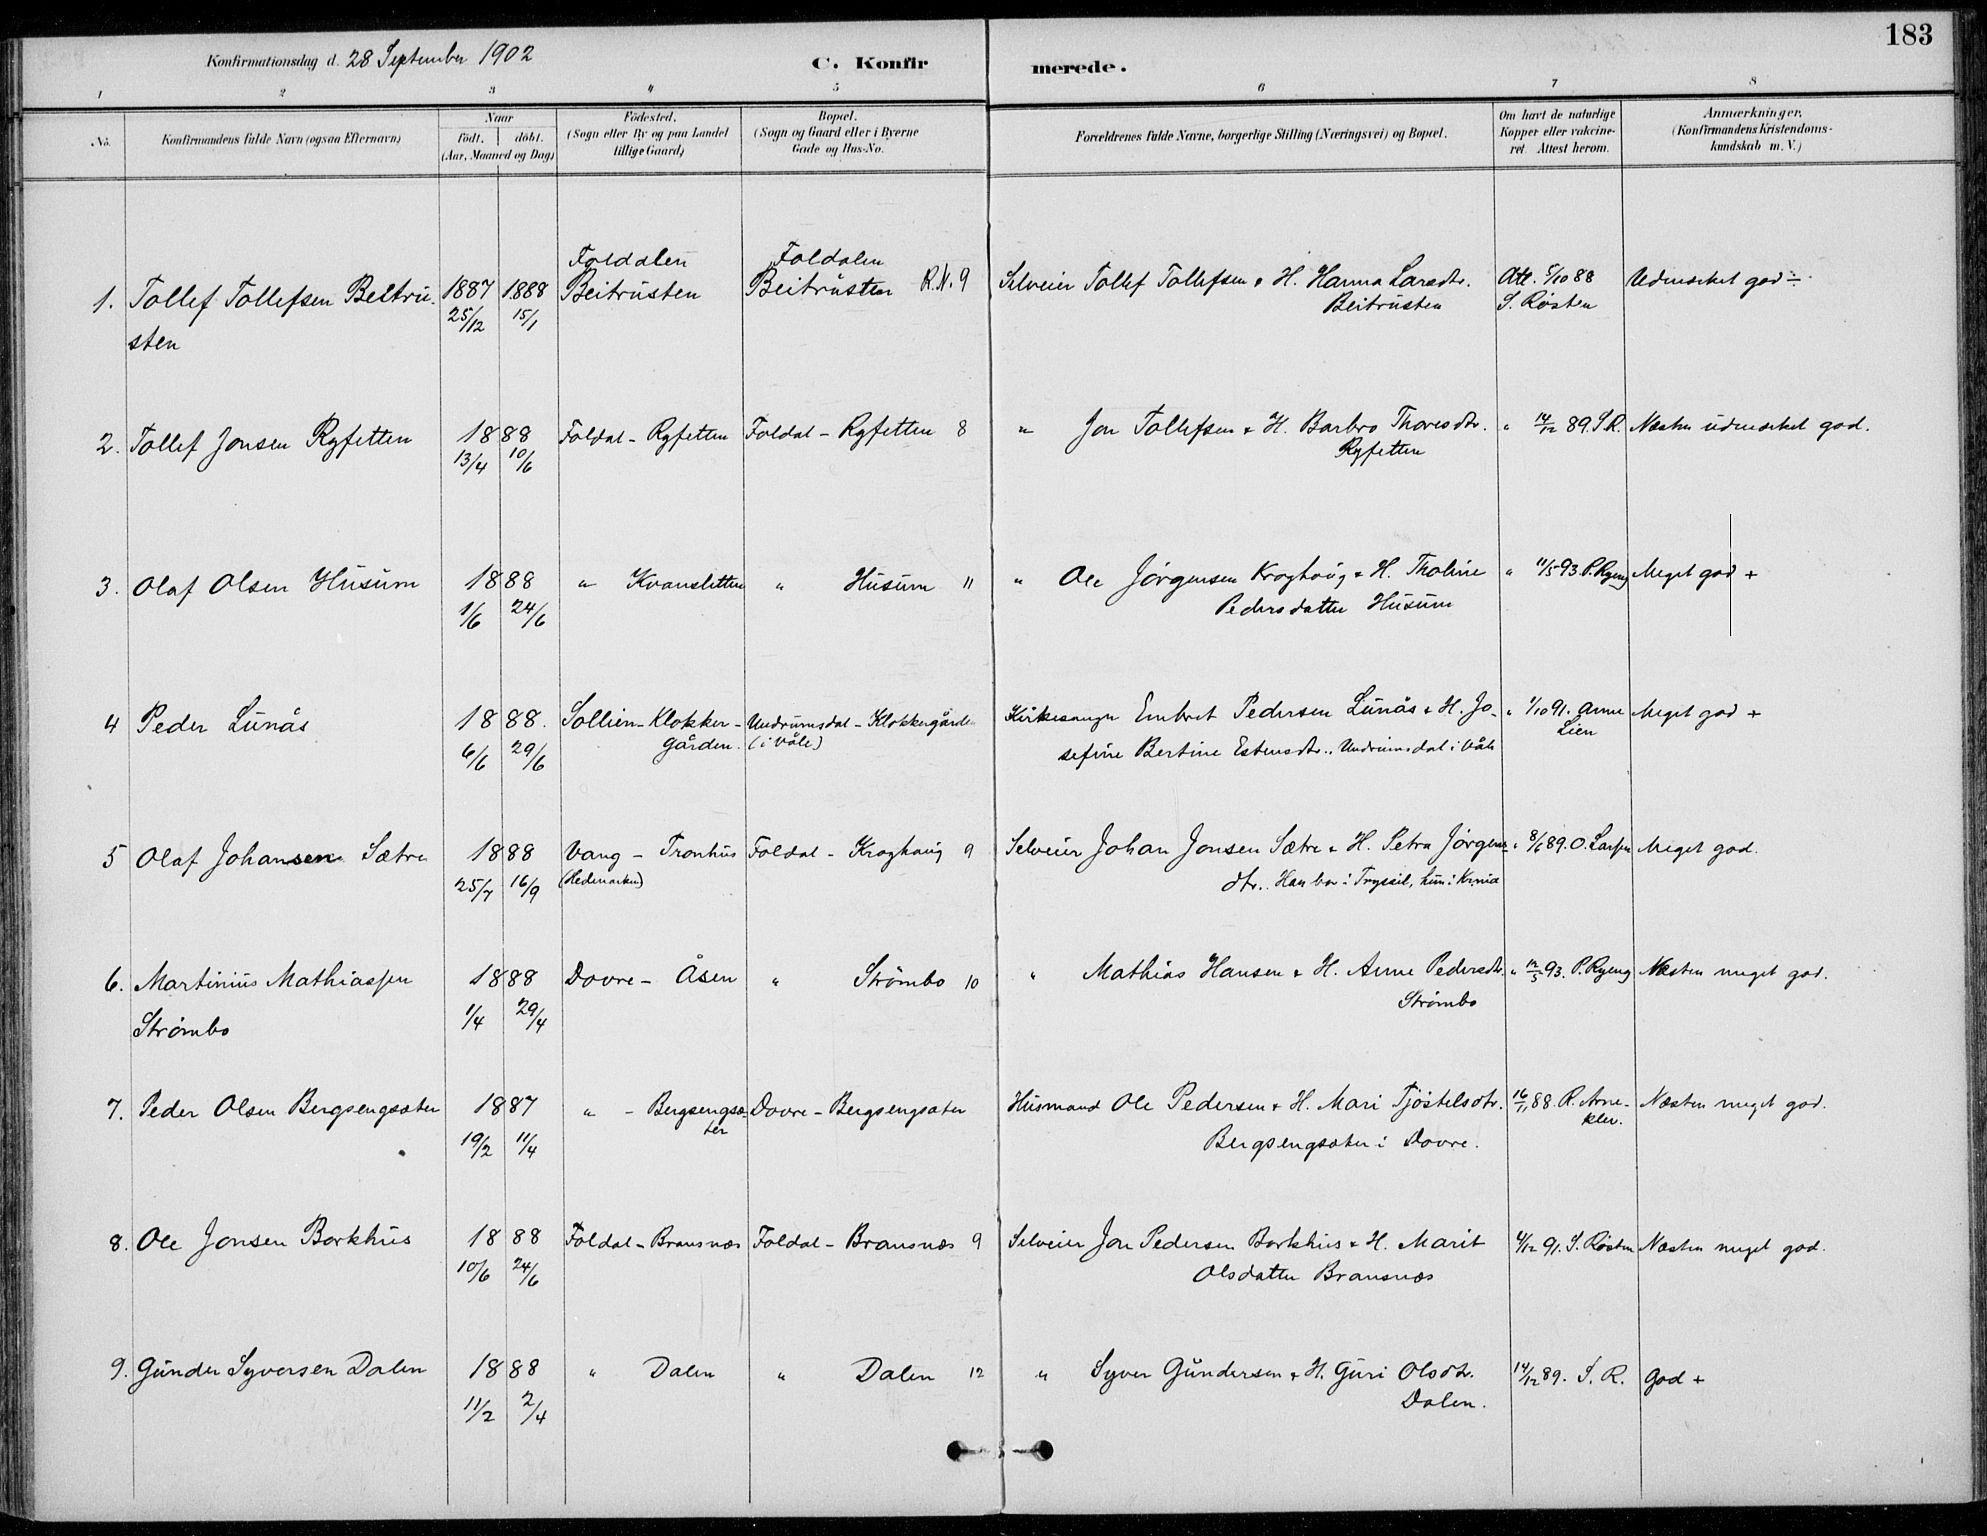 183
Konfirmationsdag d. 28 September 1902
C. Konfirmerede.
1 2 3 4 5 6 7 8
No. Konfirmandens fulde Navn (ogsaa Efternavn) Naar født, døbt. (Aar, Maaned og Dag) Fødested. (Sogn eller By og paa Landet tillige Gaard) Bopæl. (Sogn og Gaard eller i Byerne Gade og Hus-No. Forældrenes fulde Navne, borgerlige Stilling (Næringsvei) og Bopæl. Om havt de naturlige Kopper eller vaccineret Attest herom. Anmærkninger. (Konfirmandens Kristendomskundskab m. V.)
Foldalen Foldalen
1. Tollef Tollefsen Beitru- 1887 1888 Beitrusten Beitrusten R.N. 9 Selveier Tollef Tollefsen & H. Hanna Larsdtr. Att. 5/10 88 Udmerket god ÷
sten 25/12 15/1 Beitrusten S. Røsten
2. Tollef Jonsen Ryfetten 1888 Foldal - Ryfetten Foldal - Ryfetten 8 " Jon Tollefsen & H. Barbro Thoresdtr. " 14/12 89. S R. Næsten udmerket god.
13/4 10/6 Ryfetten
3. Olaf Olsen Husum 1888 " Kvansletten " Husum 11 " Ole Jörgensen Kroghaug & H. Tholine " 11/5 93 P. Ryeng Meget god +
1/6 24/6 Pedersdatter Husum
4 Peder Lunås 1888. Sollien - Klokker- Undrumsdal - Klokkergården Kirkesanger Embret Pedersen Lunås & H. Jo- " 1/10 91. Anne Meget god +
6/6 29/6 gården. (i Våle) sefine Bertine Estensdtr., Undrumsdal i Våle Lien
5 Olaf Johansen Sætre 1888 Vang - Tronhus Foldal - Kroghaug 9 Selveier Johan Jonsen Sætre & H. Petra Jörgens- " 8/6 89. O. Larsen Meget god.
25/7 16/9 (Hedemarken) dtr. Han bor i Trysil, hun i Kr.nia
6. Martinius Mathiassen 1888 Dovre - Åsen " Strömbo 10 " Mathias Hansen & H. Anne Pedersdtr. " 12/5 93. P. Ryeng Næsten meget god.
Strömbo 1/4 29/4 Strömbo
7. Peder Olsen Bergsengsæter 1887 " - Bergsengsæ- Dovre - Bergsengsæter Husmand Ole Pedersen & H. Mari Tjöstelsdtr. 16/11 88. R. Arne- Næsten meget god.
19/2 11/4 ter Bergsengsæter i Dovre. klev.
8. Ole Jonsen Borkhus 1888 Foldal - Bransnæs Foldal - Bransnæs 9 Selveier Jon Pedersen Borkhus & H. Marit 4/12 91. S. Røsten Næsten meget god.
10/6 24/6 Olsdatter Bransnæs
9. Gunder Syversen Dalen 1888 " Dalen " Dalen 12 " Syver Gundersen & H. Guri Olsdtr. 14/12 89. S. R. God +
11/2 2/4 Dalen.